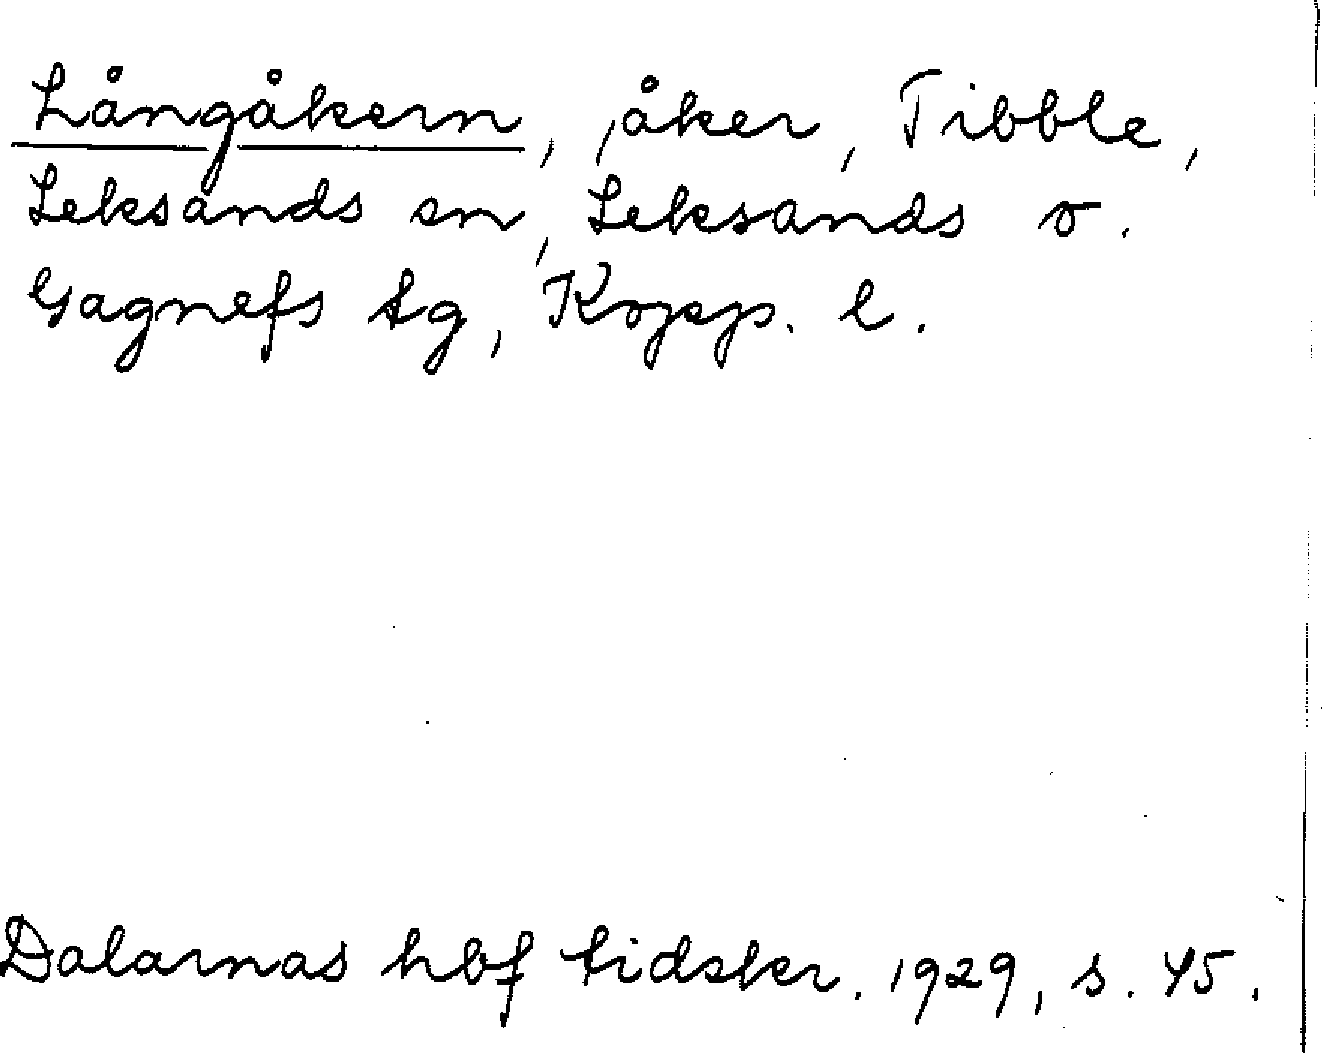 Långåkern, åker, Tibble,
Leksands sn, Leksands o.
Gagnefs tg, Kopp. l.
Dalarnas hbf tidskr. 1929, s. 45.